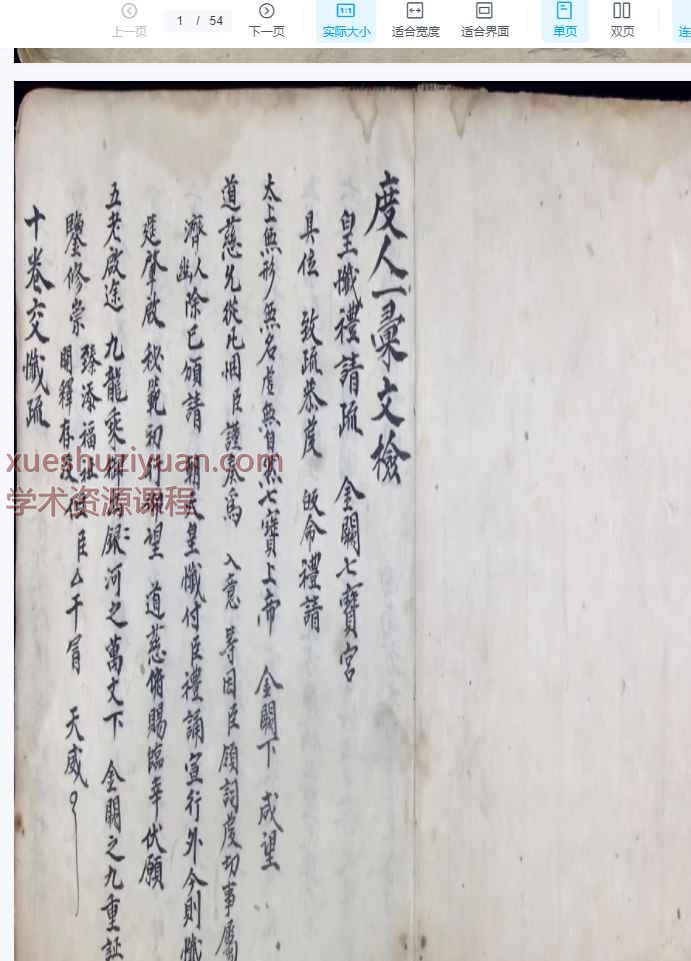 上一页
1 / 54
下一页
实际大小
适合宽度
适合界面
单页
双页
连
度人一宗文檢
皇懺禮請疏 金闕七寶宮
具位 致疏恭虔 皈命禮請
太上無形無名虛無自然七寶上帝 金闕下 咸望
道慈允從凡悃臣謹奏爲 入意 等因臣領詞虔切事屬
濟幽 除已頒請 朝天皇懺付臣禮誦宣行外今則懺
筵肇啟 秘範初行仰望 道慈俯賜臨幸伏願
五老啟途 九龍乘 銀河之萬丈下 金闕之九重証
鑒修崇 臻添福祉 開釋存 臣厶干冒 天威
十卷交懺疏
xueshuziyuan.com
学术资源课程